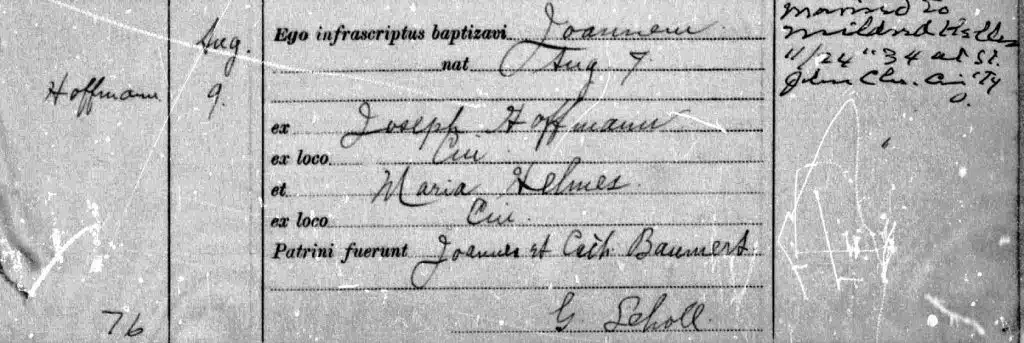 Hoffmann
76
Aug.
9.
Ego infrascriptus baptizavi Joannem
nat Aug 7
ex Joseph Hoffmann
ex loco Cin
et Maria Helmes
ex loco Cin.
Patrini fuerunt Joannes et Cath Baumert
G Scholl
married to
Mildred
11/24 "34 at St.
John Chu. Cin'ty
O.